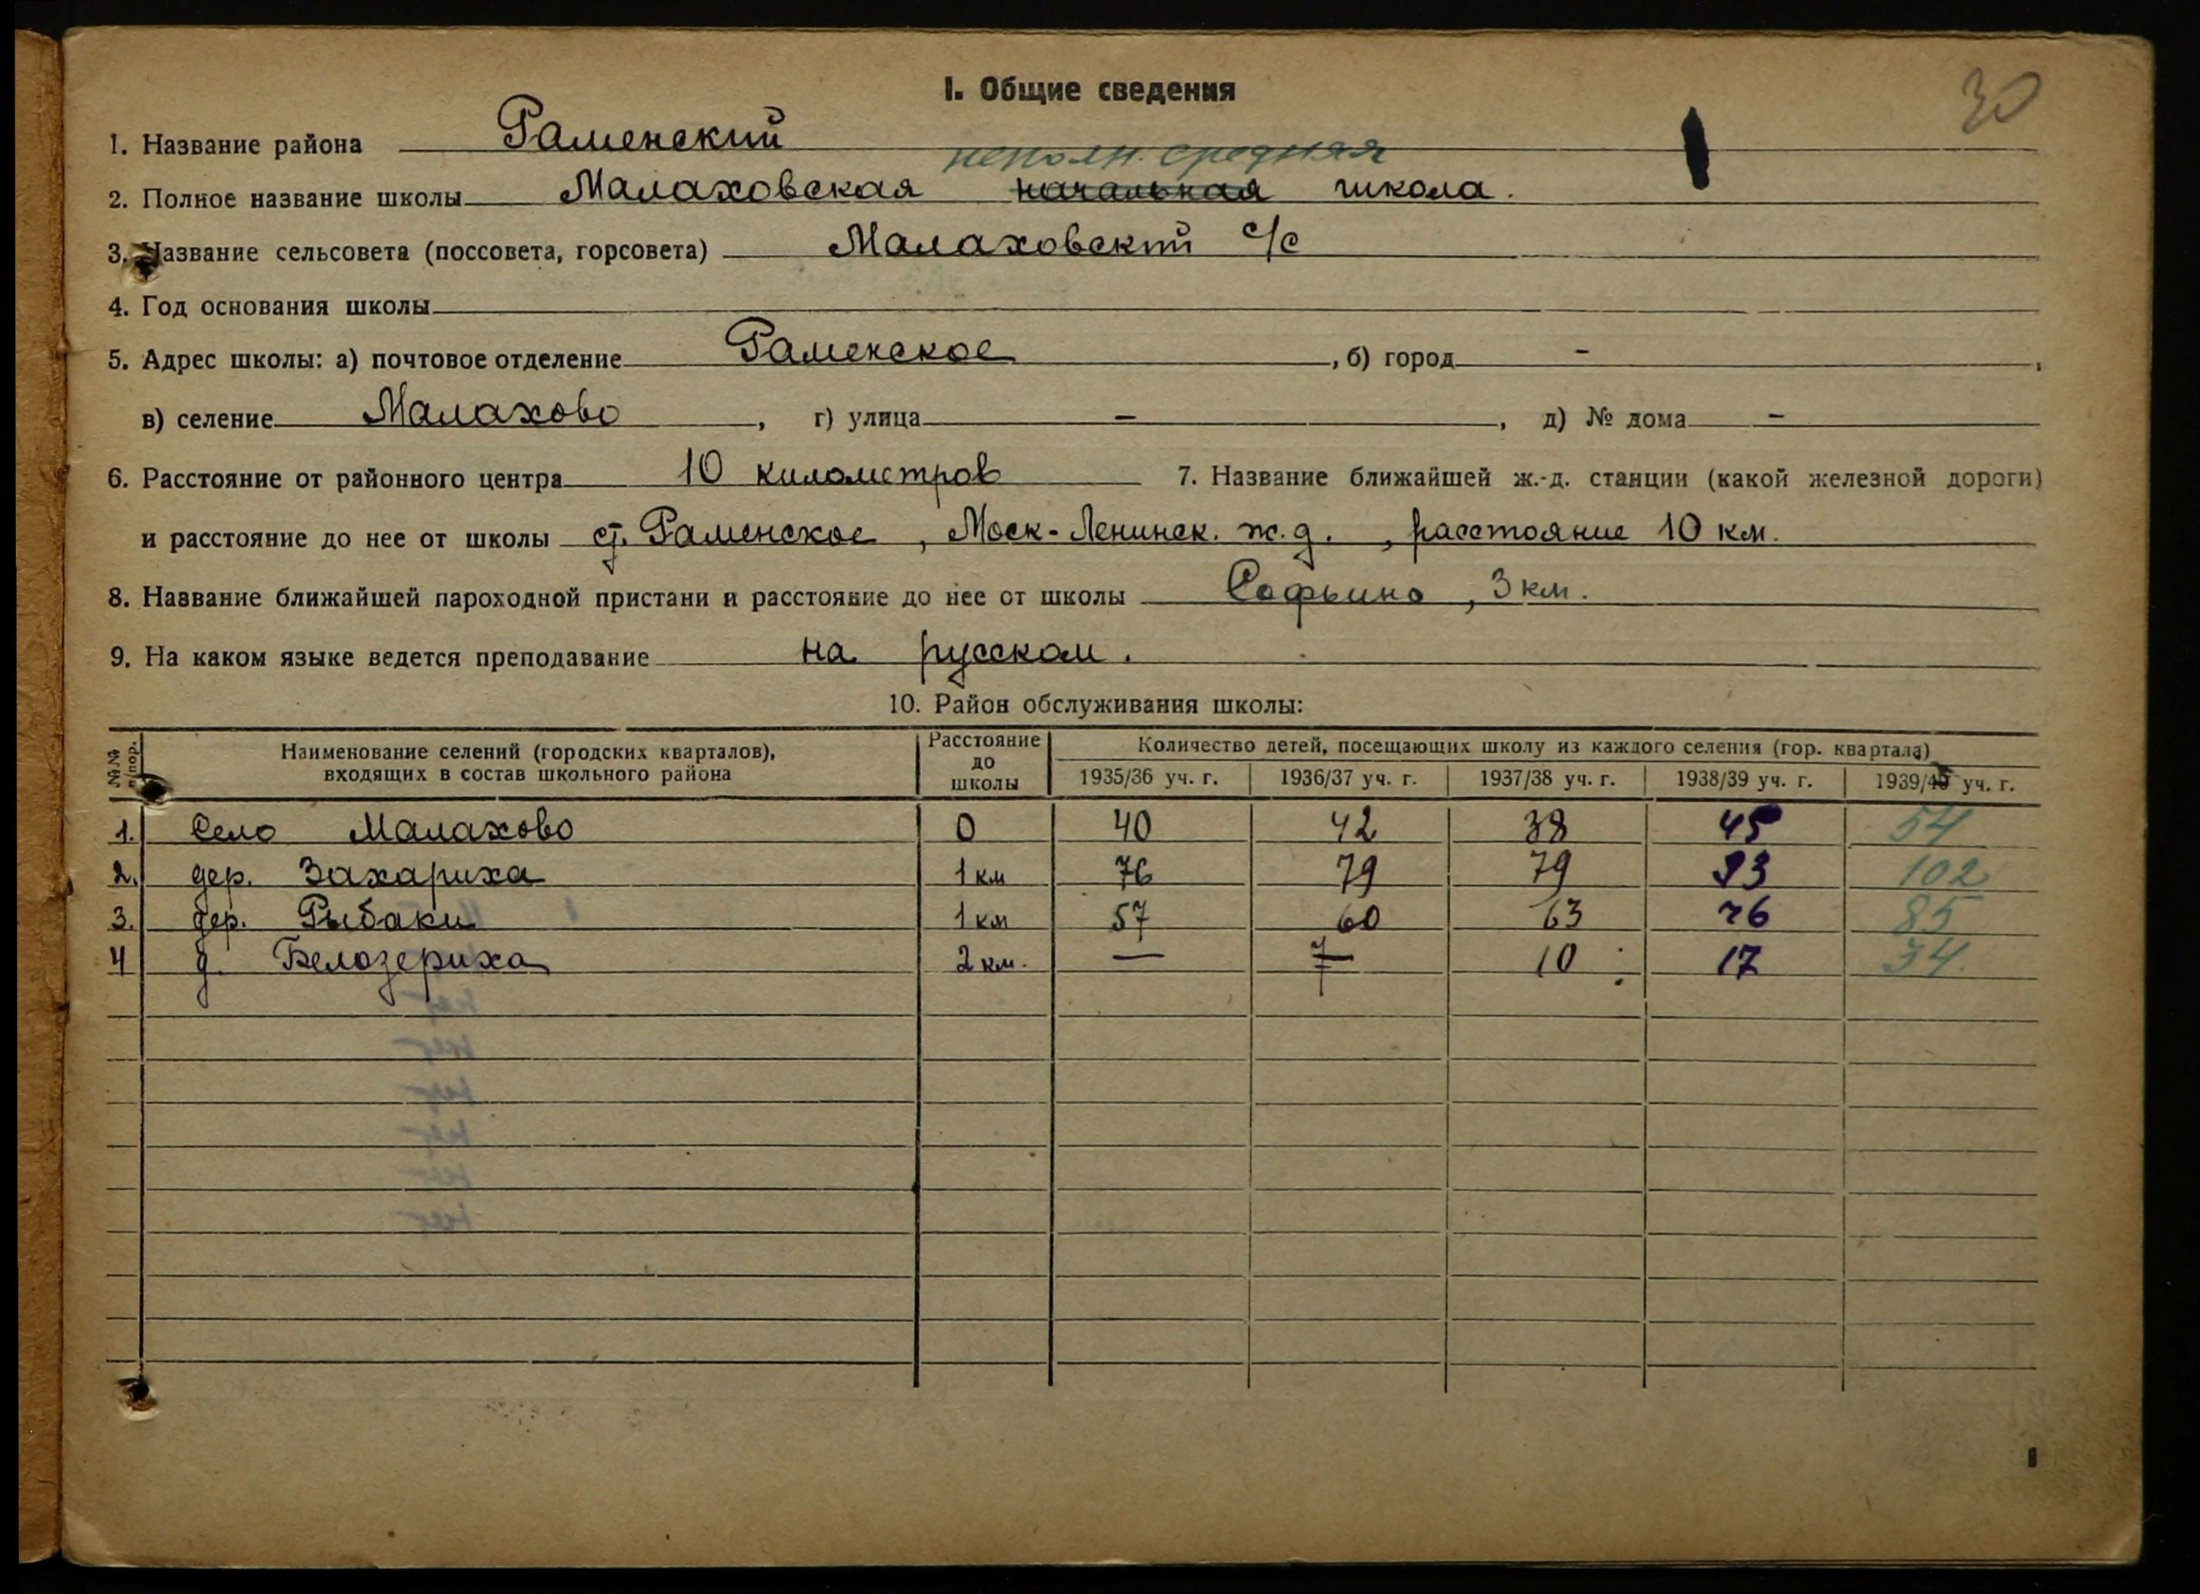 30
I. Общие сведения
1. Название района Раменский
неполн. средняя
2. Полное название школы Малаховская начальная школа.
3. Название сельсовета (поссовета, горсовета) Малаховский с/с
4. Год основания школы
5. Адрес школы: а) почтовое отделение Раменское, б) город -,
в) селение Малахово, г) улица —, д) № дома —
6. Расстояние от районного центра 10 километров 7. Название ближайшей ж.-д. станции (какой железной дороги)
и расстояние до нее от школы ст. Раменское, Моск-Ленинск. ж.д., расстояние 10 км.
8. Название ближайшей пароходной пристани и расстояние до нее от школы Софьино, 3 км.
9. На каком языке ведется преподавание на русском.
10. Район обслуживания школы:
№№ п/пор. Наименование селений (городских кварталов), входящих в состав школьного района Расстояние до школы Количество детей, посещающих школу из каждого селения (гор. квартала)
1935/36 уч. г. 1936/37 уч. г. 1937/38 уч. г. 1938/39 уч. г. 1939/40 уч. г.
1. Село Малахово 0 40 42 38 45 54
2. дер. Захариха 1 км 76 79 79 93 102
3. дер. Рыбаки 1 км 57 60 63 76 85
4 д. Белозериха 2 км. — 7 10 17 34.